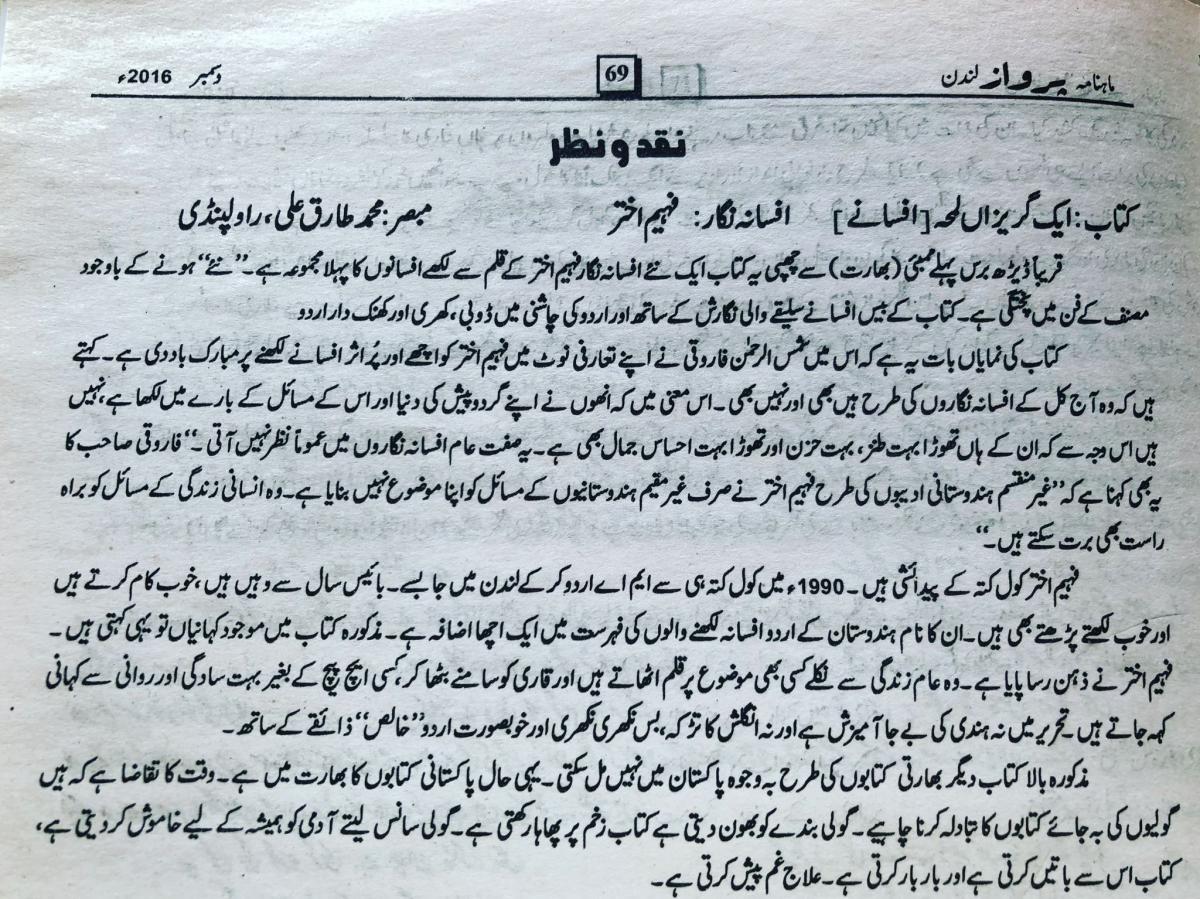 ماہنامہ پرواز لندن
69
دسمبر 2016ء
نقد و نظر
کتاب: ایک گریزاں لمحہ [افسانے] افسانہ نگار: فہیم اختر مبصر: محمد طارق علی، راولپنڈی
قریباً ڈیڑھ برس پہلے ممبئی (بھارت) سے چھپی یہ کتاب ایک نئے افسانہ نگار فہیم اختر کے قلم سے لکھے افسانوں کا پہلا مجموعہ ہے۔ ’’نئے‘‘ ہونے کے باوجود
مصنف کے فن میں پختگی ہے۔ کتاب کے بیس افسانے سلیقے والی نگارش کے ساتھ اور اردو کی چاشنی میں ڈوبی، کھری اور کھنک دار اردو
کتاب کی نمایاں بات یہ ہے کہ اس میں شمس الرحمٰن فاروقی نے اپنے تعارفی نوٹ میں فہیم اختر کو اچھے اور پُر اثر افسانے لکھنے پر مبارک باد دی ہے۔ کہتے
ہیں کہ وہ آج کل کے افسانہ نگاروں کی طرح ہیں بھی اور نہیں بھی۔ اس معنی میں کہ انھوں نے اپنے گرد و پیش کی دنیا اور اس کے مسائل کے بارے میں لکھا ہے، نہیں
ہیں اس وجہ سے کہ ان کے ہاں تھوڑا بہت طنز، بہت حزن اور تھوڑا بہت احساس جمال بھی ہے۔ یہ صفت عام افسانہ نگاروں میں عموماً نظر نہیں آتی۔‘‘ فاروقی صاحب کا
یہ بھی کہنا ہے کہ ’’غیر منقسم ہندوستانی ادیبوں کی طرح فہیم اختر نے صرف غیر مقیم ہندوستانیوں کے مسائل کو اپنا موضوع نہیں بنایا ہے۔ وہ انسانی زندگی کے مسائل کو براہ
راست بھی برت سکتے ہیں۔‘‘
فہیم اختر کول کتہ کے پیدائشی ہیں۔ 1990ء میں کول کتہ ہی سے ایم اے اردو کر کے لندن میں جا بسے۔ بائیس سال سے وہیں ہیں، خوب کام کرتے ہیں
اور خوب لکھتے پڑھتے بھی ہیں۔ ان کا نام ہندوستان کے اردو افسانہ لکھنے والوں کی فہرست میں ایک اچھا اضافہ ہے۔ مذکورہ کتاب میں موجود کہانیاں تو یہی کہتی ہیں۔
فہیم اختر نے ذہن رسا پایا ہے۔ وہ عام زندگی سے نکلے کسی بھی موضوع پر قلم اٹھاتے ہیں اور قاری کو سامنے بٹھا کر، کسی ایچ پیچ کے بغیر بہت سادگی اور روانی سے کہانی
کہہ جاتے ہیں۔ تحریر میں نہ ہندی کی بے جا آمیزش ہے اور نہ انگلش کا تڑکہ، بس نکھری نکھری اور خوبصورت اردو ’’خالص‘‘ ذائقے کے ساتھ۔
مذکورہ بالا کتاب دیگر بھارتی کتابوں کی طرح بہ وجوہ پاکستان میں نہیں مل سکتی۔ یہی حال پاکستانی کتابوں کا بھارت میں ہے۔ وقت کا تقاضا ہے کہ ہمیں
گولیوں کی بہ جائے کتابوں کا تبادلہ کرنا چاہیے۔ گولی بندے کو بھون دیتی ہے کتاب زخم پر پھاہا رکھتی ہے۔ گولی سانس لیتے آدمی کو ہمیشہ کے لیے خاموش کر دیتی ہے،
کتاب اس سے باتیں کرتی ہے اور بار بار کرتی ہے۔ علاج غم پیش کرتی ہے۔